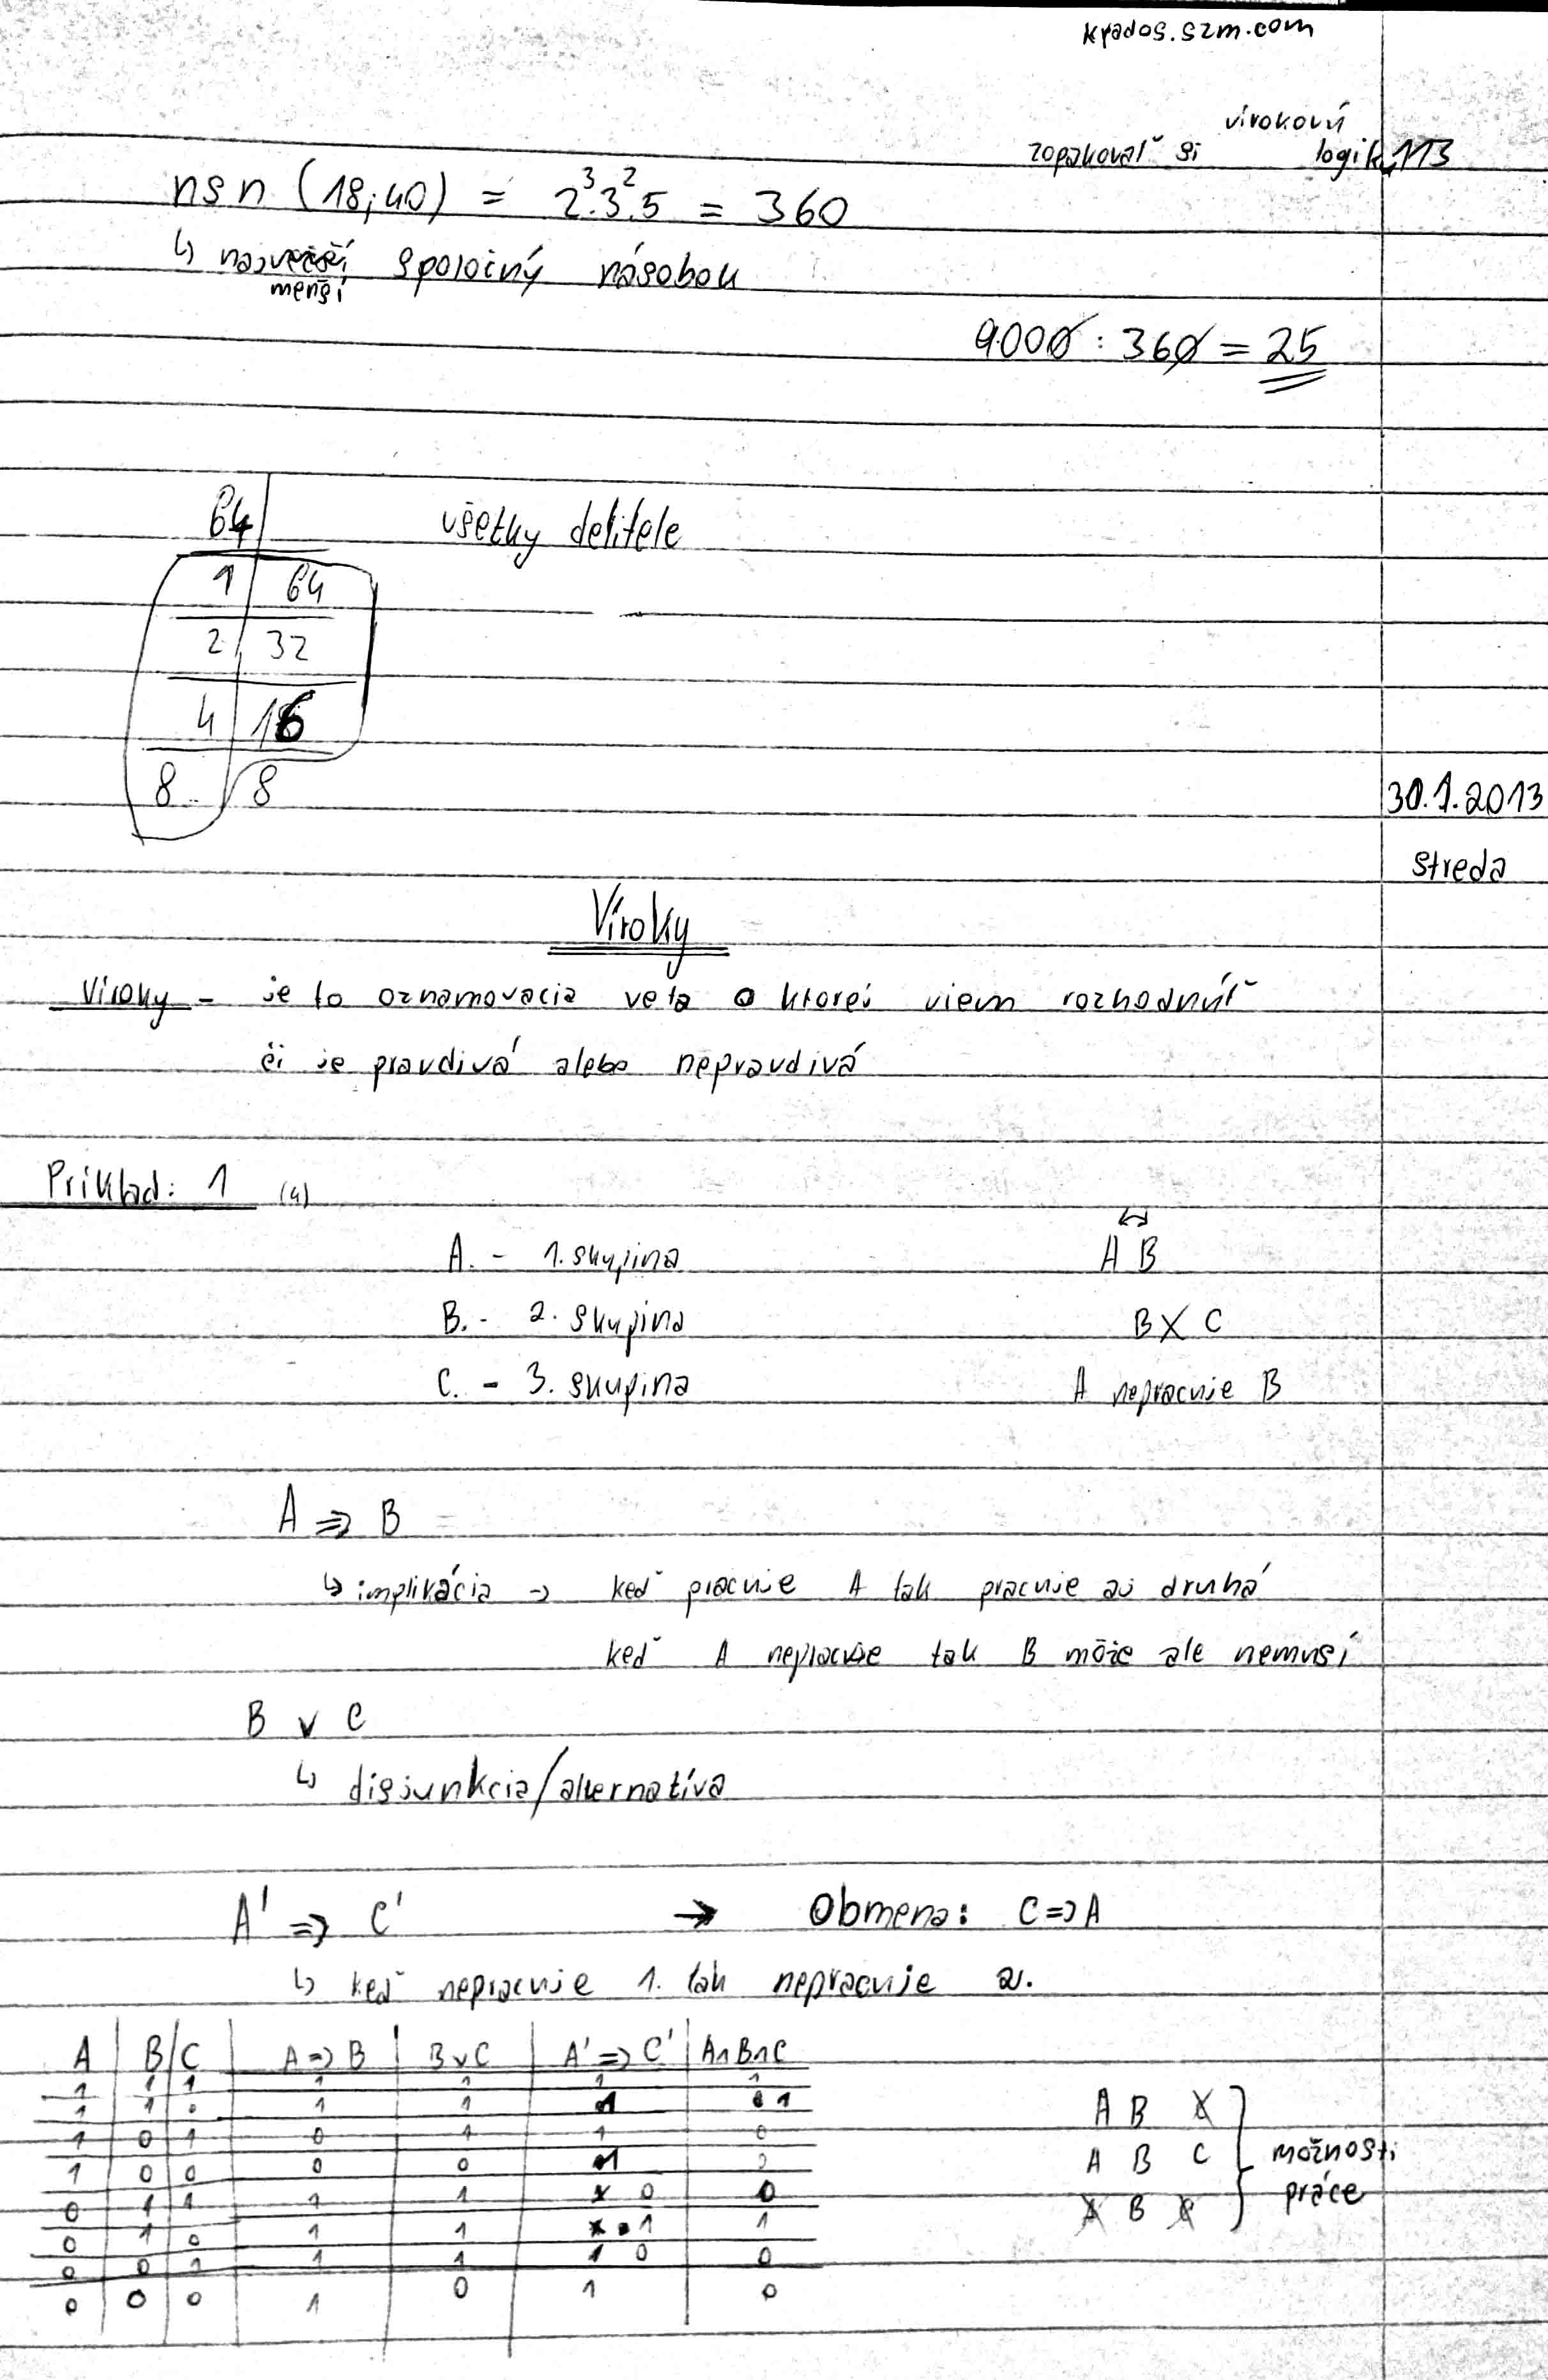 krados.szm.com
zopakovať si vírokovú logik 113
nsn (18;40) = 2³.3².5 = 360
↳ najväčší spoločný násobok
menší
9000 : 360 = 25
64
všetky delitele
1 | 64
2 | 32
4 | 16
8 | 8
30.1.2013
streda
Víroky
Víroky - je to oznamovacia veta o ktorej viem rozhodnúť
či je pravdivá alebo nepravdivá
Príklad: 1 (4)
↔
A. - 1. skupina A B
B. - 2. skupina B X C
C. - 3. skupina A nepracuje B
A ⇒ B
↳ implikácia → keď pracuje A tak pracuje aj druhá
keď A nepracuje tak B môže ale nemusí
B ∨ C
↳ disjunkcia/alternatíva
A' ⇒ C' → Obmena: C ⇒ A
↳ keď nepracuje 1. tak nepracuje 2.
A | B | C | A ⇒ B | B ∨ C | A' ⇒ C' | A∧B∧C
1 | 1 | 1 | 1 | 1 | 1 | 1
1 | 1 | 0 | 1 | 1 | 1 | 1
1 | 0 | 1 | 0 | 1 | 1 | 0
1 | 0 | 0 | 0 | 0 | 1 | 0
0 | 1 | 1 | 1 | 1 | 0 | 0
0 | 1 | 0 | 1 | 1 | 1 | 1
0 | 0 | 1 | 1 | 1 | 1 0 | 0
0 | 0 | 0 | 1 | 0 | 1 | 0
A B C
A B C možnosti
A B C práce